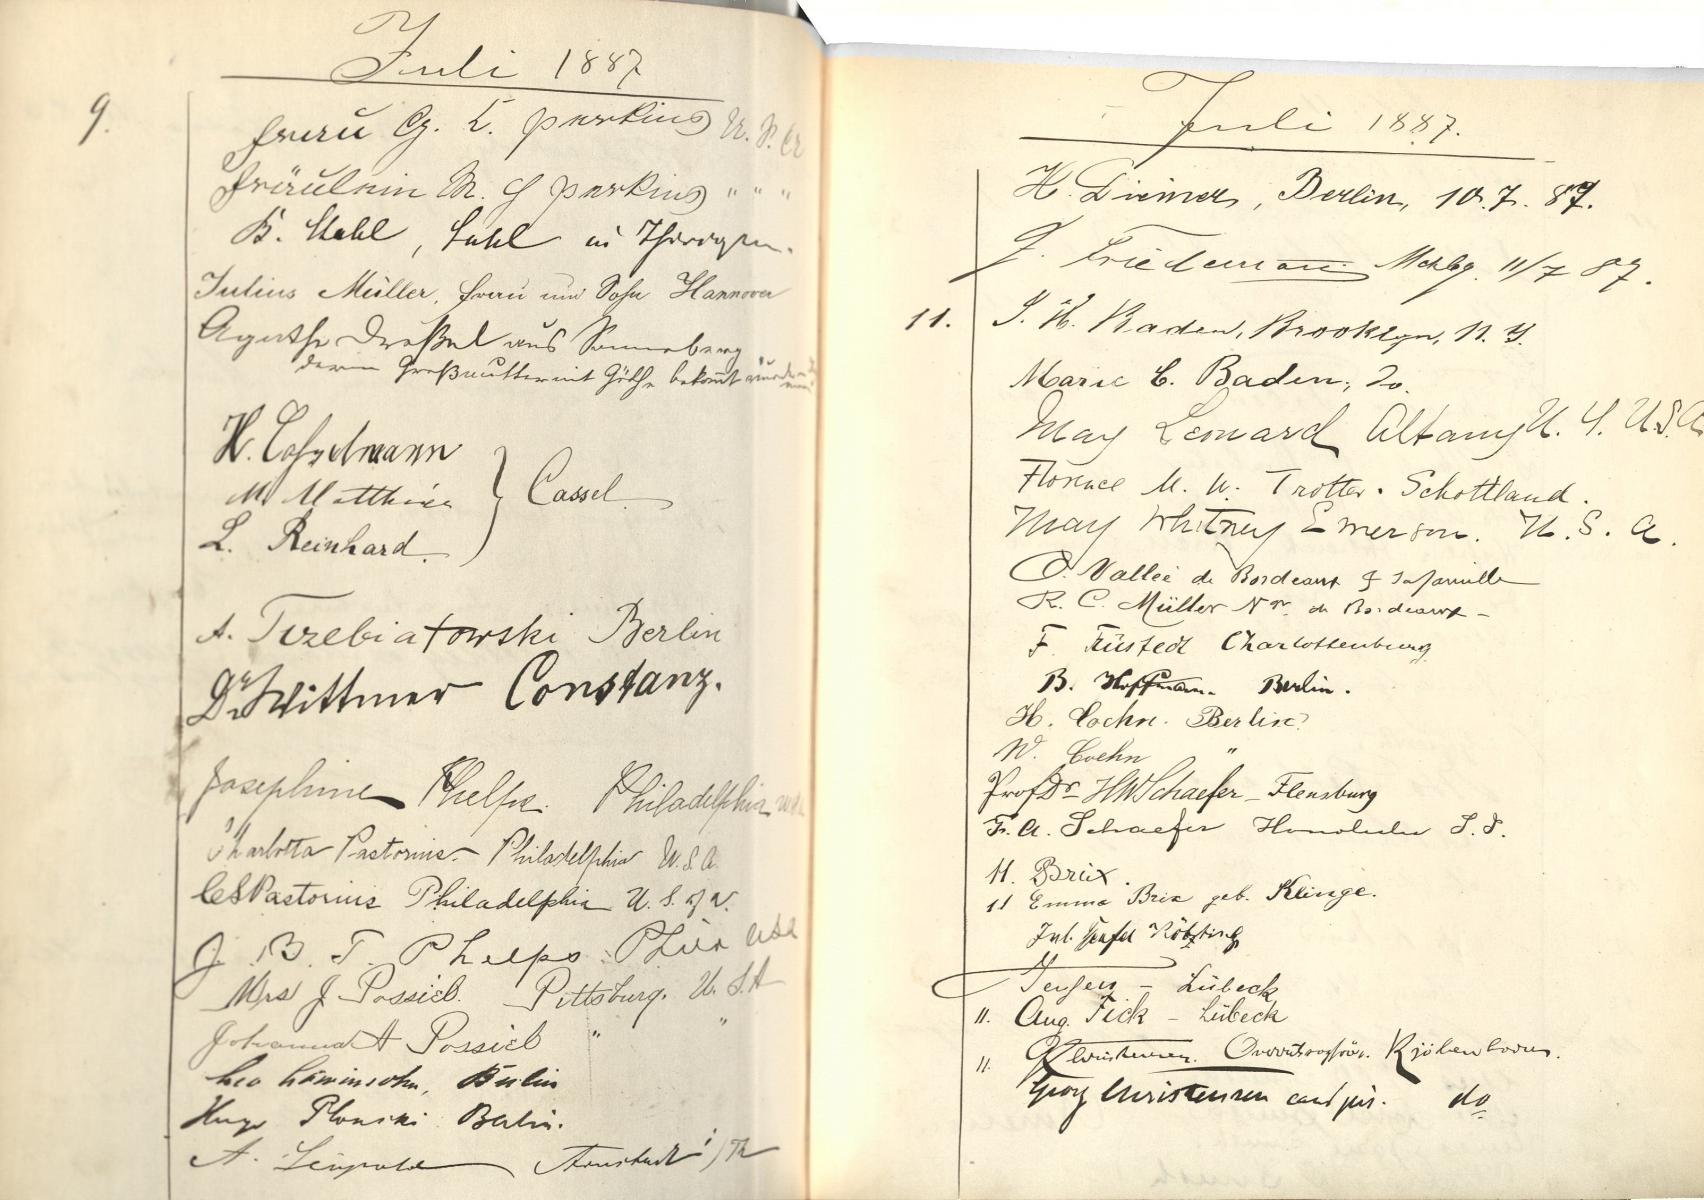 Juli 1887
9.
Frau G. L. Perkins U. S. A
Fräulein M. G Perkins " " "
B. Stahl, Suhl in Thüringen.
Julius Müller, Frau und Sohn Hannover
Agathe Dreßel aus Sonneberg
deren Großmutter mit Göthe bekannt
H.
M. Matthias } Cassel
L. Reinhard.
A. Trzebiatowski Berlin
Dr Wittmer Constanz.
Josephine Phelps. Philadelphia USA
Charlotta Pastorius - Philadelphia U. S. A.
C S Pastorius Philadelphia U. S. of A.
J. B. T. Phelps. Phila USA
Mrs J. Possiel. Pittsburg. U. S. A
Johanna A Possiel " "
Leo Löwinsohn, Berlin
Hugo Plonski Berlin.
A. Leupold Arnstadt i/Th
Juli 1887.
H. Diemer, Berlin, 10.7.87.
J. Friedemann Mchlbg. 11/7 87.
11. J. H. Baden, Brooklyn, N. Y.
Marie C. Baden, Do.
May Leonard Albany N. Y. U.S.A
Florence M. W. Trotter. Schottland.
May Whitney Emerson. U. S. A.
O. Vallée de Bordeaux & sa famille
R. C. Müller Nr. de Bordeaux -
F. Tüstedt Charlottenburg.
B. Hoffmann. Berlin.
H. Coehn. Berlin
W. Coehn "
Prof Dr HW Schaefer - Flensburg
Fr. A. Schaefer Honolulu S. I.
11. Brix.
11 Emma Brix geb. Klinge.
Jul. Kötzting
- Lübeck
11. Aug. Fick - Lübeck
11. Christensen. Kjöbenhavn.
Georg Christensen cand jur. do